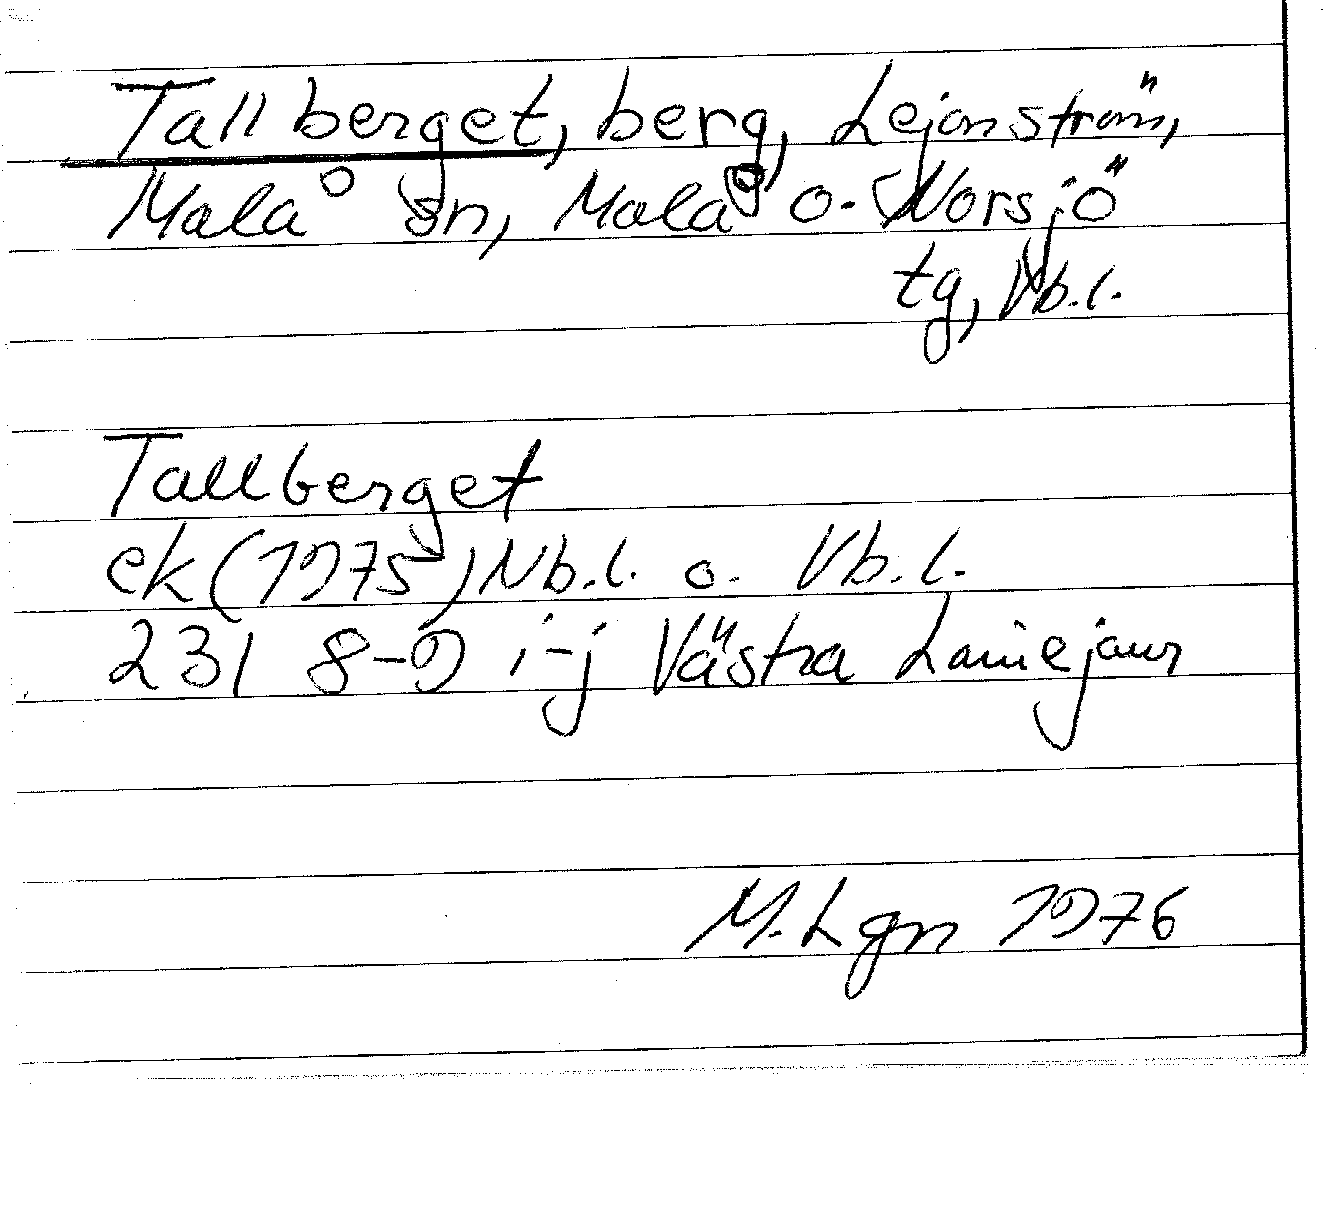 Tallberget, berg, Lejonström,
Malå sn, Malå o. Norsjö
tg, Vb.l.
Tallberget
ek (1975) Nb.l. o. Vb.l.
23I 8-9 i-j Västra Lainejaur
M. Lgn 1976